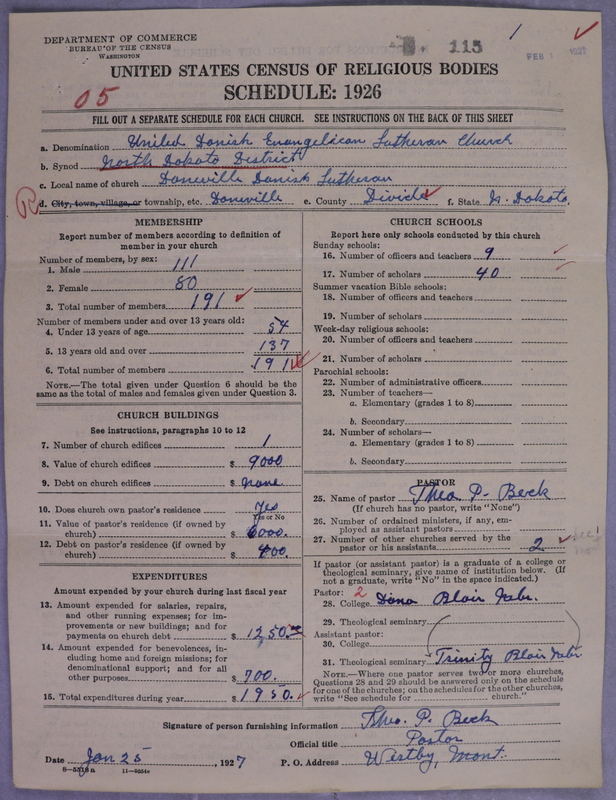 DEPARTMENT OF COMMERCE
BUREAU OF THE CENSUS
WASHINGTON
115
1
FEB 1 1927
UNITED STATES CENSUS OF RELIGIOUS BODIES
SCHEDULE: 1926
05
FILL OUT A SEPARATE SCHEDULE FOR EACH CHURCH. SEE INSTRUCTIONS ON THE BACK OF THIS SHEET
a. Denomination United Danish Evangelican Lutheran Church
b. Synod North Dakota District
c. Local name of church Daneville Danish Lutheran
d. City, town, village, or township, etc. Daneville e. County Divide f. State N. Dakota
MEMBERSHIP
Report number of members according to definition of
member in your church
Number of members, by sex:
1. Male 111
2. Female 80
3. Total number of members 191
Number of members under and over 13 years old:
4. Under 13 years of age 54
5. 13 years old and over 137
6. Total number of members 191
NOTE.—The total given under Question 6 should be the
same as the total of males and females given under Question 3.
CHURCH BUILDINGS
See instructions, paragraphs 10 to 12
7. Number of church edifices 1
8. Value of church edifices $ 9000
9. Debt on church edifices $ none
10. Does church own pastor's residence Yes
Yes or No
11. Value of pastor's residence (if owned by
church) $ 6000.
12. Debt on pastor's residence (if owned by
church) $ 400.
EXPENDITURES
Amount expended by your church during last fiscal year
13. Amount expended for salaries, repairs,
and other running expenses; for im-
provements or new buildings; and for
payments on church debt $ 1250.
14. Amount expended for benevolences, in-
cluding home and foreign missions; for
denominational support; and for all
other purposes $ 700.
15. Total expenditures during year $ 1950.
CHURCH SCHOOLS
Report here only schools conducted by this church
Sunday schools:
16. Number of officers and teachers 9
17. Number of scholars 40
Summer vacation Bible schools:
18. Number of officers and teachers
19. Number of scholars
Week-day religious schools:
20. Number of officers and teachers
21. Number of scholars
Parochial schools:
22. Number of administrative officers
23. Number of teachers—
a. Elementary (grades 1 to 8)
b. Secondary
24. Number of scholars—
a. Elementary (grades 1 to 8)
b. Secondary
PASTOR
25. Name of pastor Theo. P. Beck
(If church has no pastor, write "None")
26. Number of ordained ministers, if any, em-
ployed as assistant pastors
27. Number of other churches served by the
pastor or his assistants 2
If pastor (or assistant pastor) is a graduate of a college or
theological seminary, give name of institution below. (If
not a graduate, write "No" in the space indicated.)
Pastor: 2
28. College Dana Blair Nebr.
29. Theological seminary
Assistant pastor:
30. College
31. Theological seminary Trinity Blair Nebr.
NOTE.—Where one pastor serves two or more churches,
Questions 28 and 29 should be answered only on the schedule
for one of the churches; on the schedules for the other churches,
write "See schedule for church."
Signature of person furnishing information Theo. P. Beck
Official title Pastor
Date Jan 25, 1927 P. O. Address Westby, Mont.
11—9254